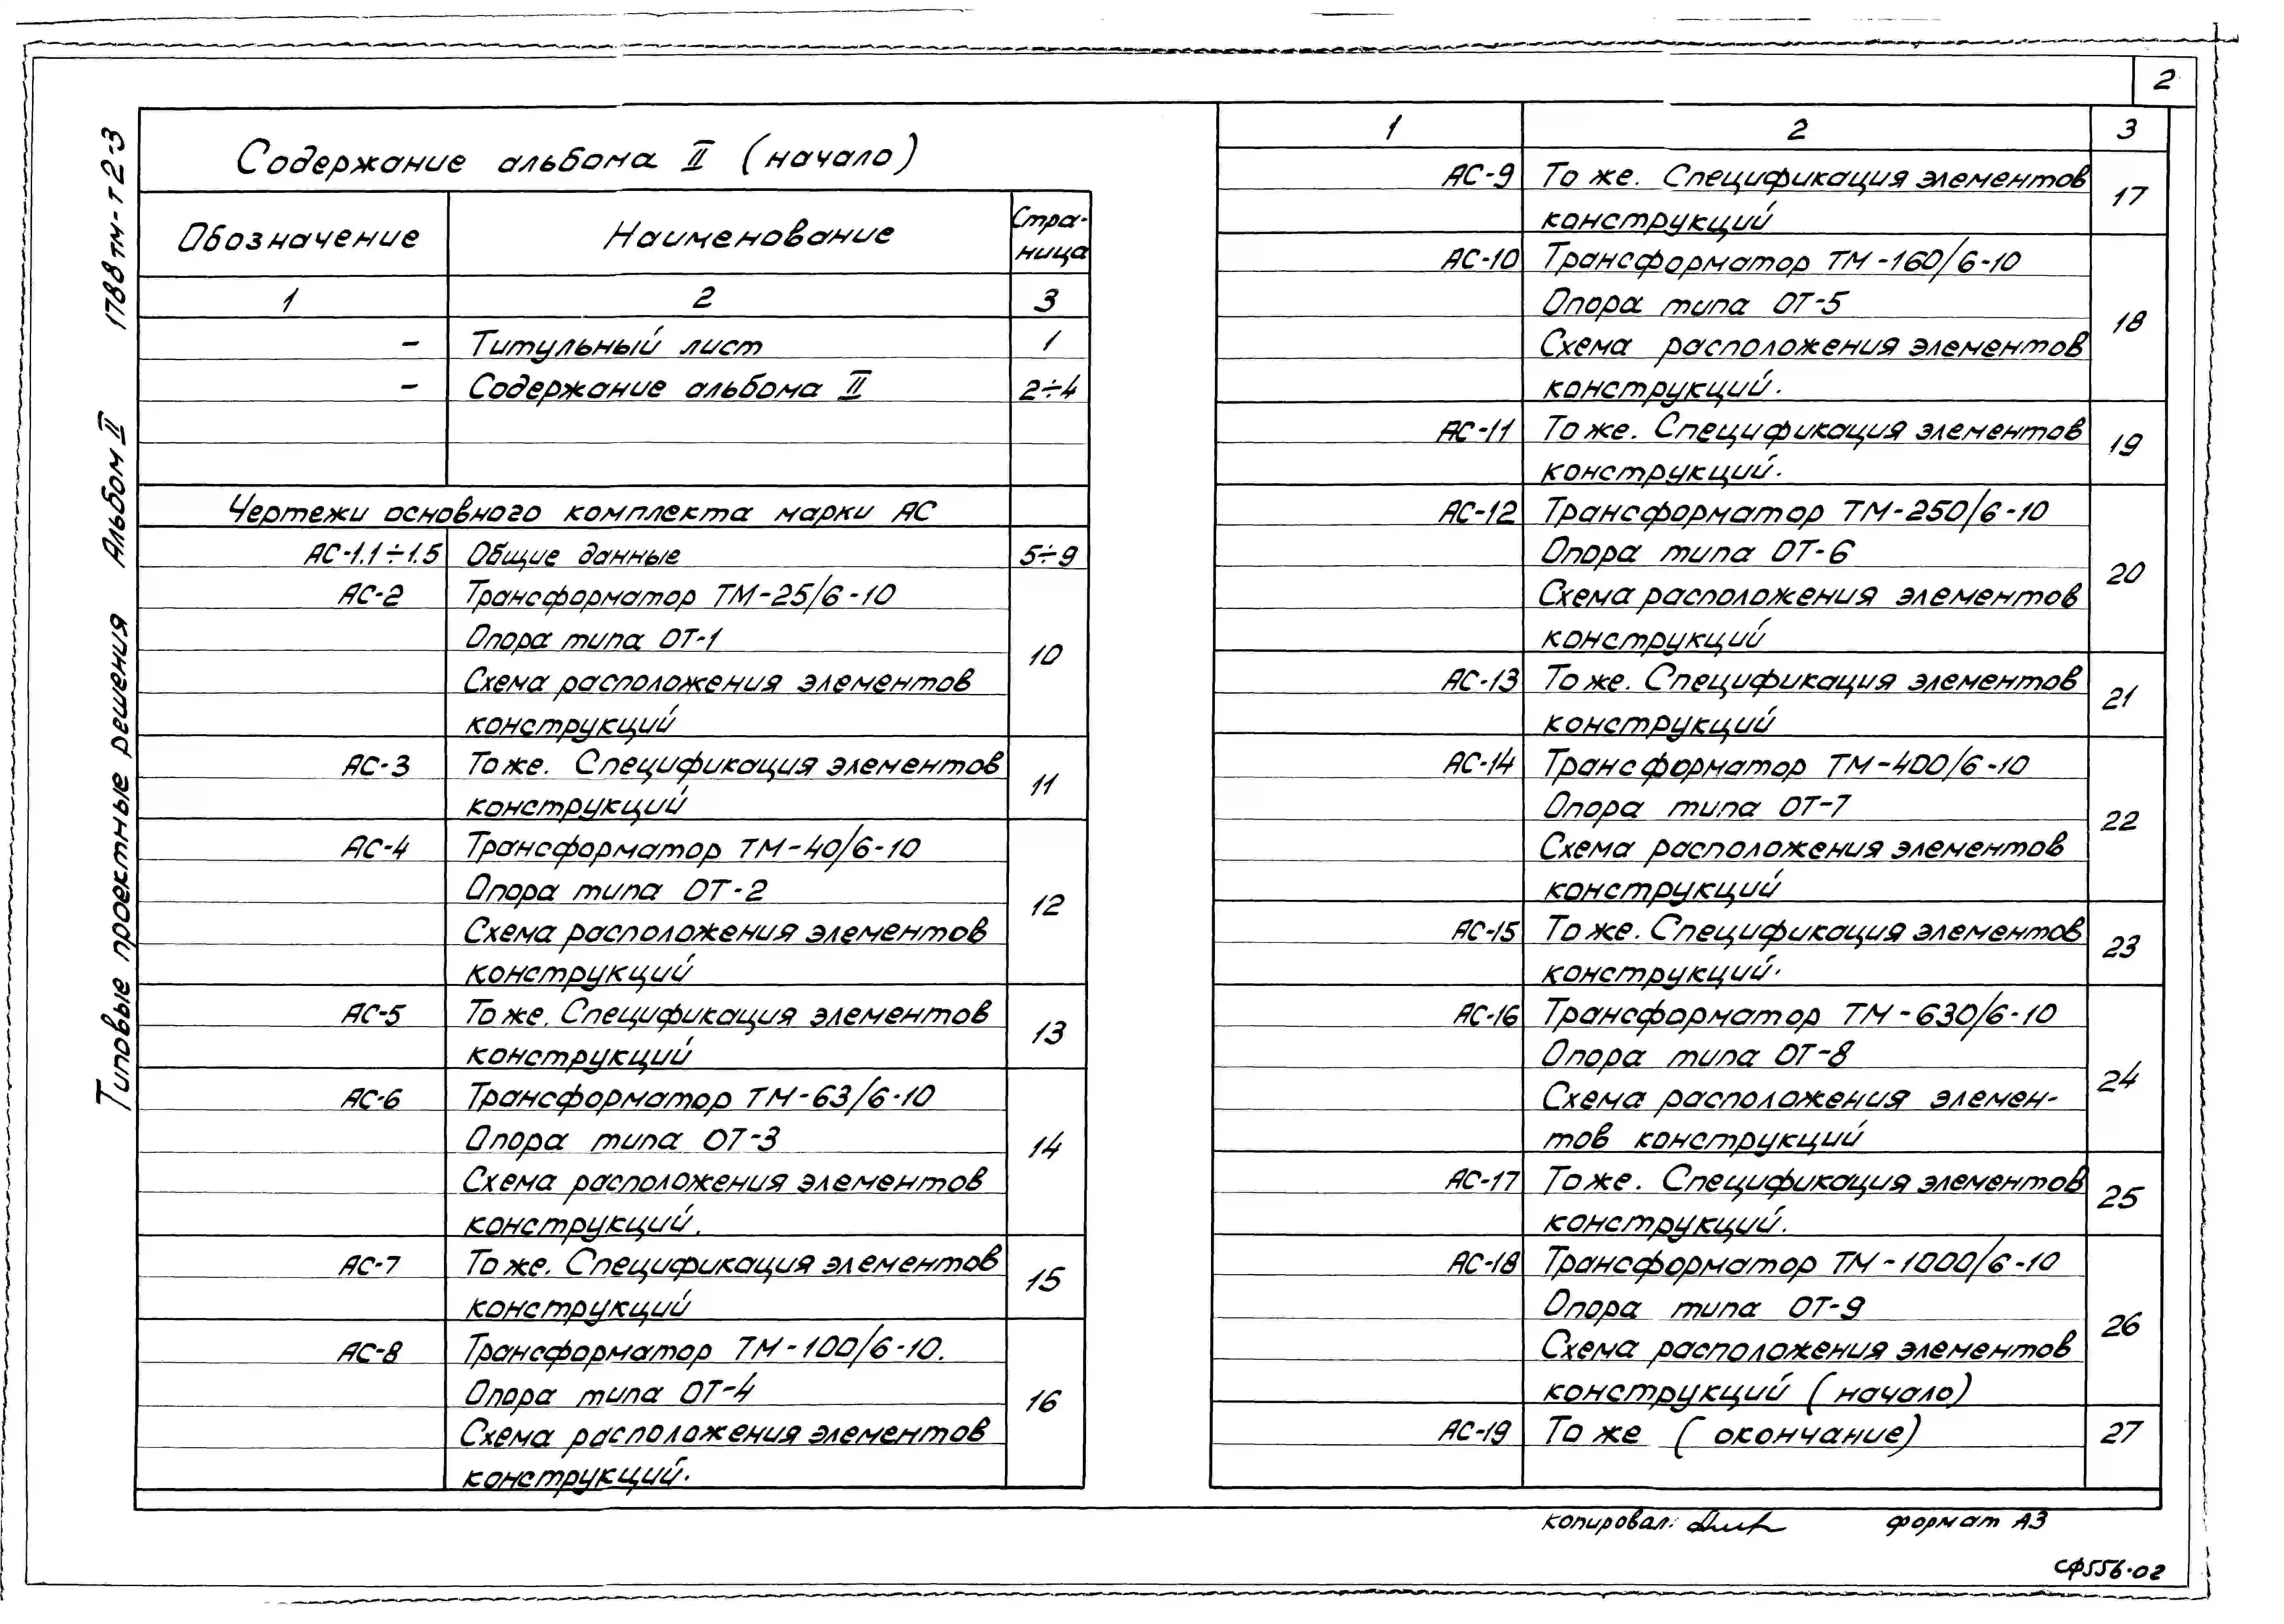 2
Типовые проектные решения Альбом II 1788тм-т2-3
Содержание альбома II (начало)
Обозначение Наименование Стра-
ница
1 2 3
- Титульный лист 1
- Содержание альбома II 2÷4
Чертежи основного комплекта марки АС
АС-1.1÷1.5 Общие данные 5÷9
АС-2 Трансформатор ТМ-25/6-10
Опора типа ОТ-1
10
Схема расположения элементов
конструкций
АС-3 То же. Спецификация элементов
11
конструкций
АС-4 Трансформатор ТМ-40/6-10
Опора типа ОТ-2
12
Схема расположения элементов
конструкций
АС-5 То же. Спецификация элементов
13
конструкций
АС-6 Трансформатор ТМ-63/6-10
Опора типа ОТ-3
14
Схема расположения элементов
конструкций.
АС-7 То же. Спецификация элементов
15
конструкций
АС-8 Трансформатор ТМ-100/6-10.
Опора типа ОТ-4
16
Схема расположения элементов
конструкций.
1 2 3
АС-9 То же. Спецификация элементов
17
конструкций
АС-10 Трансформатор ТМ-160/6-10
Опора типа ОТ-5
18
Схема расположения элементов
конструкций.
АС-11 То же. Спецификация элементов
19
конструкций.
АС-12 Трансформатор ТМ-250/6-10
Опора типа ОТ-6
20
Схема расположения элементов
конструкций
АС-13 То же. Спецификация элементов
21
конструкций
АС-14 Трансформатор ТМ-400/6-10
Опора типа ОТ-7
22
Схема расположения элементов
конструкций
АС-15 То же. Спецификация элементов
23
конструкций.
АС-16 Трансформатор ТМ-630/6-10
Опора типа ОТ-8
24
Схема расположения элемен-
тов конструкций
АС-17 То же. Спецификация элементов
25
конструкций.
АС-18 Трансформатор ТМ-1000/6-10
Опора типа ОТ-9
26
Схема расположения элементов
конструкций (начало)
АС-19 То же (окончание) 27
копировал: формат А3
сф556-02